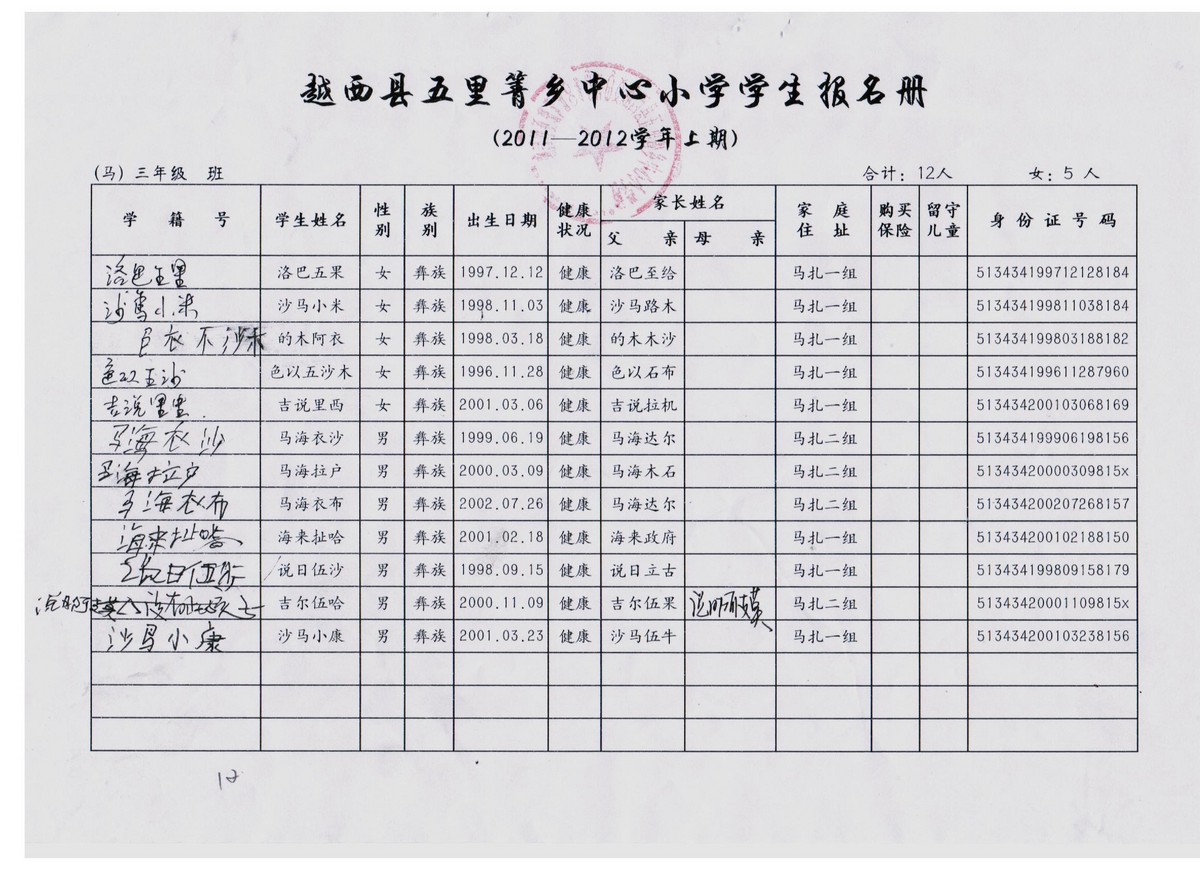 越西县五里箐乡中心小学学生报名册
(2011—2012学年上期)
(马) 三年级 班 合计: 12人 女: 5 人
学 籍 号 学生姓名 性别 族别 出生日期 健康状况 家长姓名 父 亲 母 亲 家 庭 住 址 购买保险 留守儿童 身 份 证 号 码
洛巴五果 女 彝族 1997.12.12 健康 洛巴至给 马扎一组 513434199712128184
沙马小米 沙马小米 女 彝族 1998.11.03 健康 沙马路木 马扎一组 513434199811038184
的木阿衣 女 彝族 1998.03.18 健康 的木木沙 马扎一组 513434199803188182
色以五沙木 女 彝族 1996.11.28 健康 色以石布 马扎一组 513434199611287960
吉说里西 女 彝族 2001.03.06 健康 吉说拉机 马扎一组 513434200103068169
马海衣沙 马海衣沙 男 彝族 1999.06.19 健康 马海达尔 马扎二组 513434199906198156
马海拉户 马海拉户 男 彝族 2000.03.09 健康 马海木石 马扎二组 51343420000309815x
马海衣布 马海衣布 男 彝族 2002.07.26 健康 马海达尔 马扎二组 513434200207268157
海来扯哈 海来扯哈 男 彝族 2001.02.18 健康 海来政府 马扎一组 513434200102188150
说日伍沙 男 彝族 1998.09.15 健康 说日立古 马扎一组 513434199809158179
吉尔伍哈 男 彝族 2000.11.09 健康 吉尔伍果 马扎二组 51343420001109815x
沙马小康 沙马小康 男 彝族 2001.03.23 健康 沙马伍牛 马扎一组 513434200103238156
12